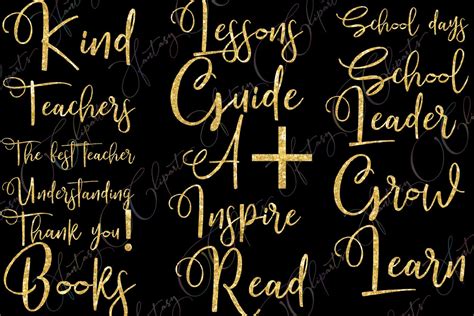 Kind
Teachers
The best teacher
Understanding
Thank you!
Books
Lessons
Guide
A+
Inspire
Read
School days
School
Leader
Grow
Learn